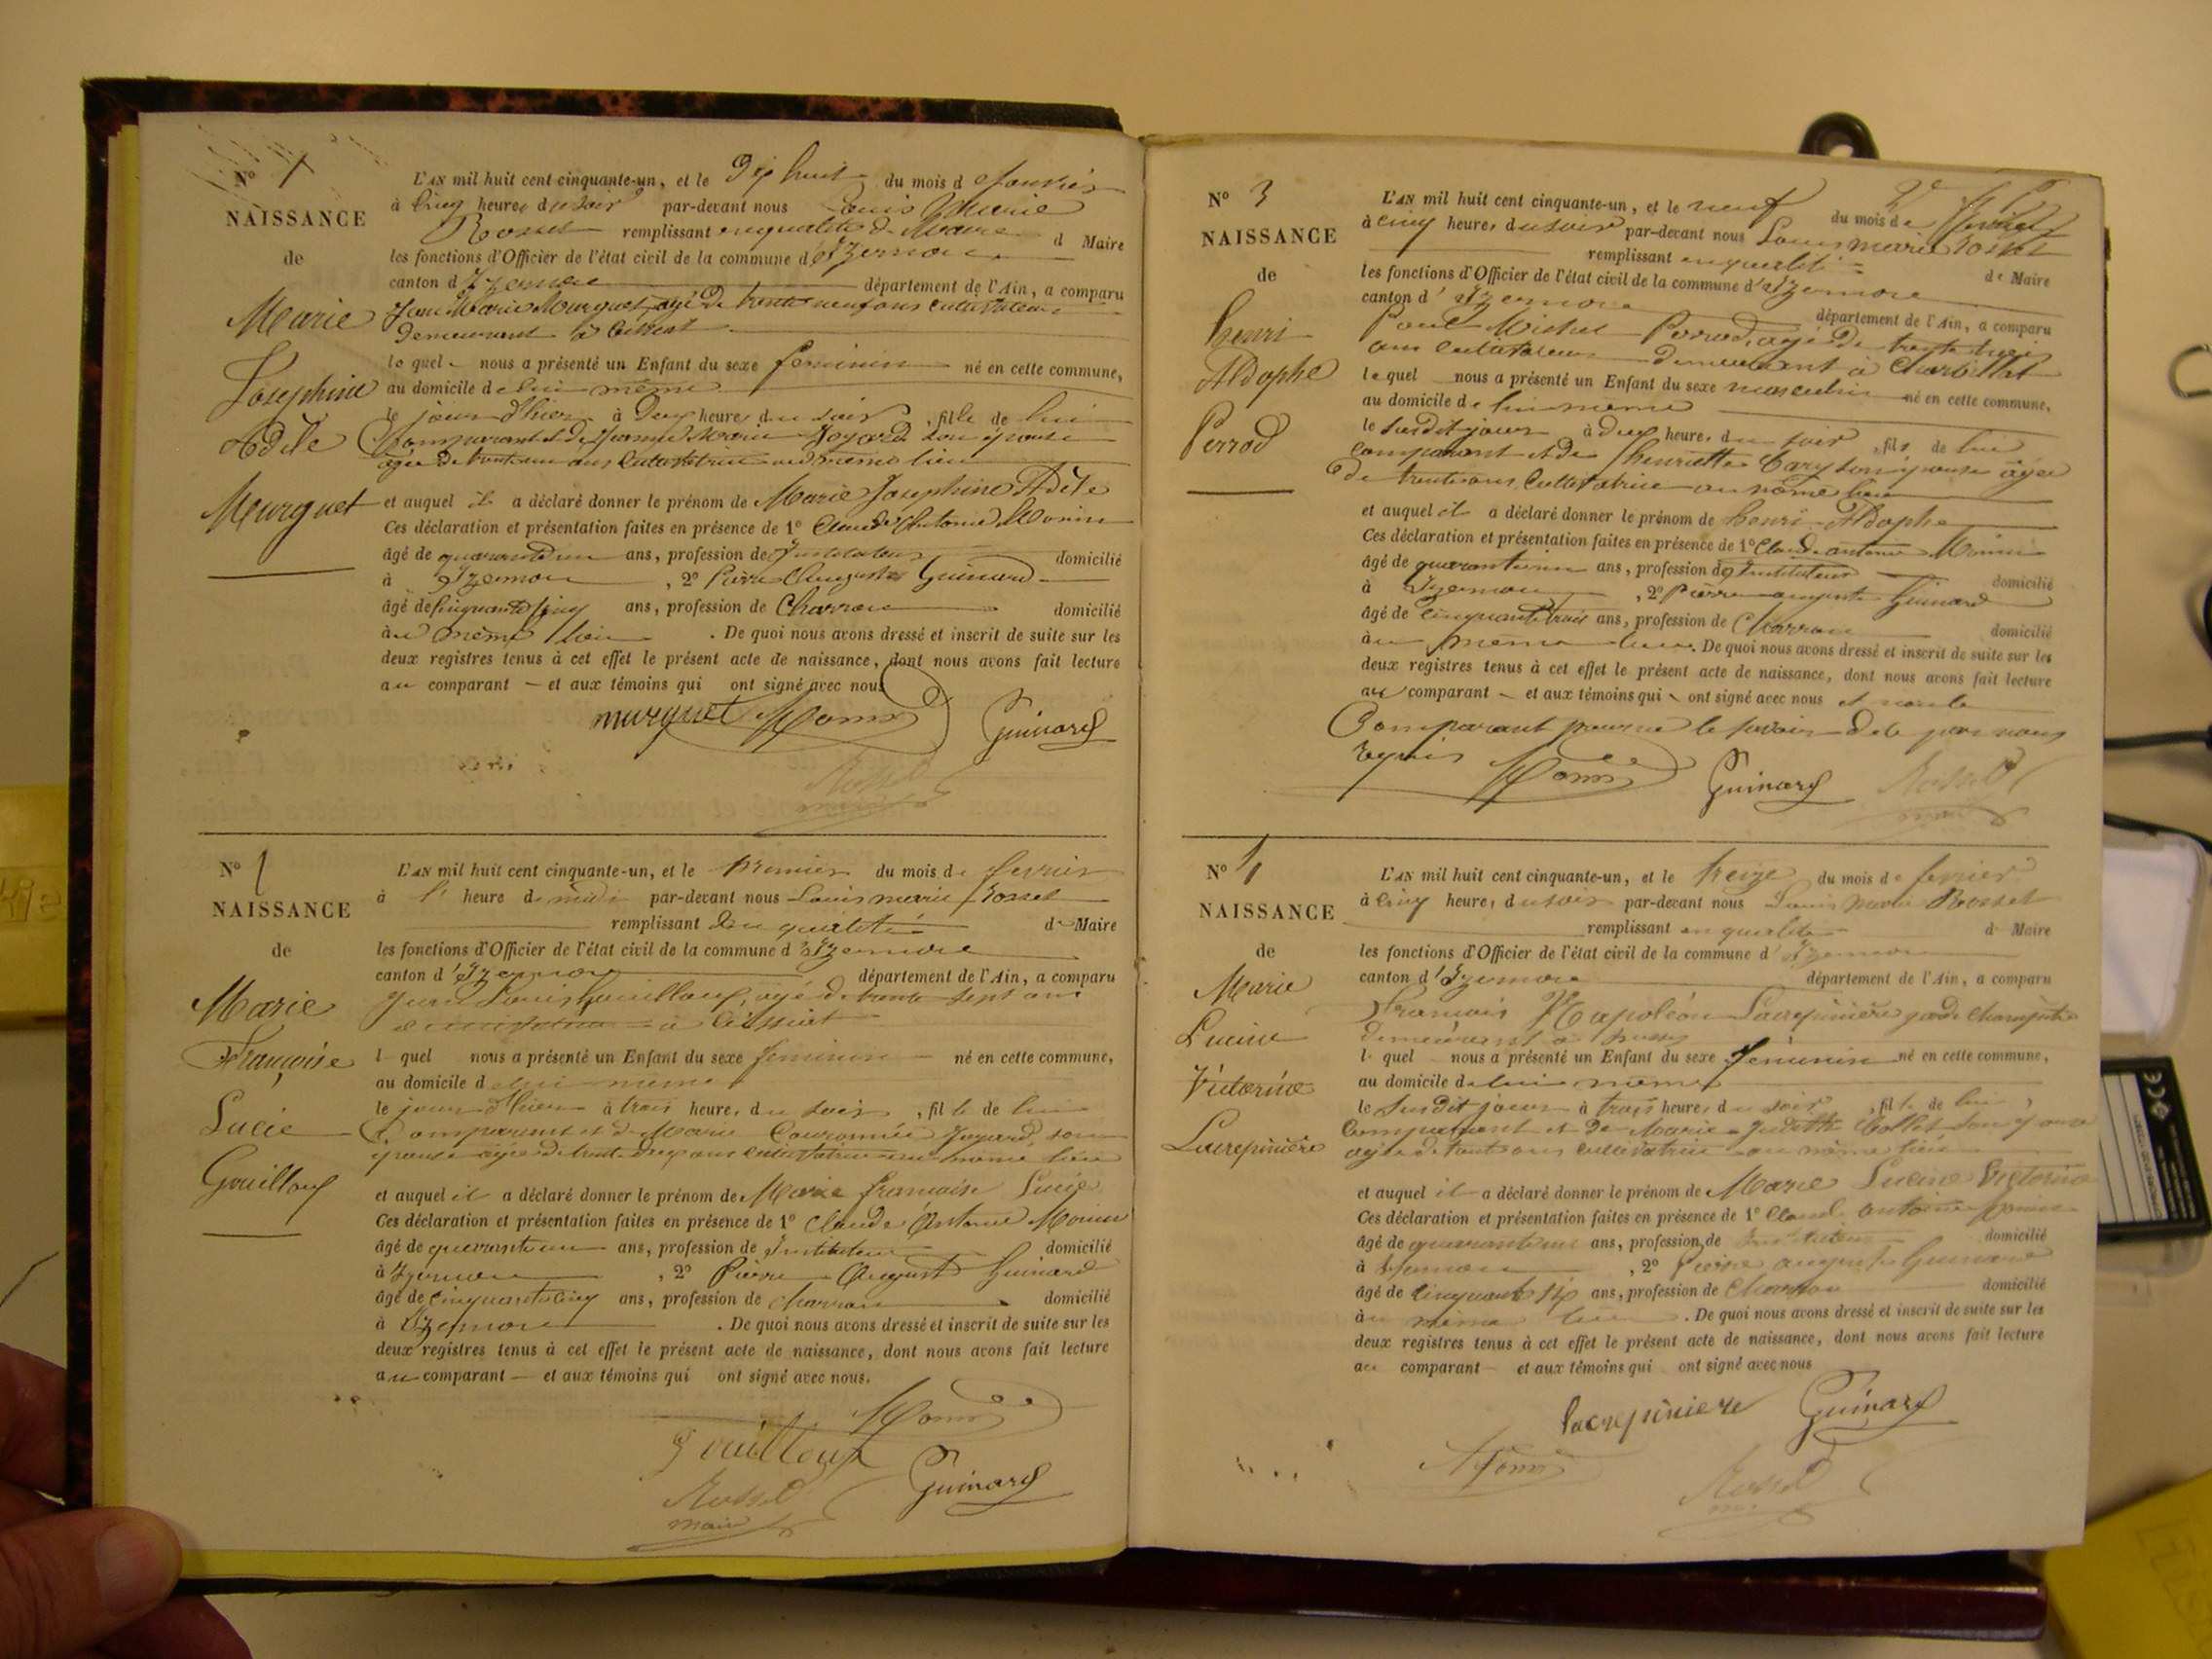 N° 1
NAISSANCE
de
Marie
Josephine
Adèle
Murguet
L'AN mil huit cent cinquante-un, et le Dix huit du mois d Janvier
à cinq heures du soir par-devant nous Louis Marie
Rosset remplissant en qualité de Maire d Maire
les fonctions d'Officier de l'état civil de la commune d'Izernore
canton d'Izernore département de l'Ain, a comparu
Jean Marie Murguet, agé de trente neuf ans cultivateur
demeurant à Ceissiat
le quel nous a présenté un Enfant du sexe feminin né en cette commune,
au domicile de lui même
le jour d'hier à Deux heures du soir, fille de lui
Comparant et de Jeanne Marie Joyard son épouse
agée de trente un ans cultivatrice au même lieu
et auquel il a déclaré donner le prénom de Marie Josephine Adèle
Ces déclaration et présentation faites en présence de 1° Claude Antoine Monin
âgé de quarante un ans, profession de Instituteur domicilié
à Izernore, 2° Pierre Auguste Guinard
âgé de cinquante cinq ans, profession de Charron domicilié
au même lieu. De quoi nous avons dressé et inscrit de suite sur les
deux registres tenus à cet effet le présent acte de naissance, dont nous avons fait lecture
au comparant et aux témoins qui ont signé avec nous
murguet Monin Guinard
Rosset
N°
NAISSANCE
de
Marie
Françoise
Lucie
Gouilloux
L'AN mil huit cent cinquante-un, et le premier du mois de fevrier
à l' heure de midi par-devant nous Louis marie Rosset
remplissant en qualité de Maire
les fonctions d'Officier de l'état civil de la commune d'Izernore
canton d'Izernore département de l'Ain, a comparu
Jean Louis Gouilloux, agé de trente sept ans
à Ceissiat
l quel nous a présenté un Enfant du sexe feminin né en cette commune,
au domicile de lui même
le jour d'hier à trois heures du soir, fille de lui
Comparant et de Marie Couronnée Joyard, son
épouse agée de trente deux ans cultivatrice au même lieu
et auquel il a déclaré donner le prénom de Marie françoise Lucie
Ces déclaration et présentation faites en présence de 1° Claude Antoine Monin
âgé de quarante un ans, profession de Instituteur domicilié
à Izernore, 2° Pierre August Guinard
âgé de cinquante cinq ans, profession de charron domicilié
à Izernore. De quoi nous avons dressé et inscrit de suite sur les
deux registres tenus à cet effet le présent acte de naissance, dont nous avons fait lecture
au comparant et aux témoins qui ont signé avec nous.
Monin
gouilloux
Rosset Guinard
maire
N° 3
NAISSANCE
de
henri
Aldophe
Perrod
L'AN mil huit cent cinquante-un, et le neuf du mois de fevrier
à cinq heures du soir par-devant nous Louis marie Rosset
remplissant en qualité de Maire
les fonctions d'Officier de l'état civil de la commune d'Izernore
canton d'Izernore département de l'Ain, a comparu
Paul Michel Perrod, agé de trente trois
ans cultivateur demeurant à Charbillat
le quel nous a présenté un Enfant du sexe masculin né en cette commune,
au domicile de lui même
le susdit jour à deux heures du soir, fils de lui
comparant et de henriette Cary son épouse agée
de trente ans cultivatrice au même lieu
et auquel il a déclaré donner le prénom de henri Aldophe
Ces déclaration et présentation faites en présence de 1° Claude antoine Monin
âgé de quarante un ans, profession de Instituteur domicilié
à Izernore, 2° Pierre auguste Guinard
âgé de cinquante trois ans, profession de Charron domicilié
au même lieu. De quoi nous avons dressé et inscrit de suite sur les
deux registres tenus à cet effet le présent acte de naissance, dont nous avons fait lecture
au comparant et aux témoins qui ont signé avec nous et non le
Comparant pour ne le savoir de ce par nous
requis Monin Guinard Rosset
N°
NAISSANCE
de
Marie
Lucine
Victorine
Lacrepinière
L'AN mil huit cent cinquante-un, et le treize du mois de fevrier
à cinq heures du soir par-devant nous Louis marie Rosset
remplissant en qualité de Maire
les fonctions d'Officier de l'état civil de la commune d'Izernore
canton d'Izernore département de l'Ain, a comparu
François Napoléon Lacrepinière garde Champêtre
demeurant à
l quel nous a présenté un Enfant du sexe feminin né en cette commune,
au domicile de lui même
le susdit jour à trois heures du soir, fille de lui
Comparant et de Marie Judith Collet son épouse
agée de trente ans cultivatrice au même lieu
et auquel il a déclaré donner le prénom de Marie Lucine Victorine
Ces déclaration et présentation faites en présence de 1° Claude antoine Monin
âgé de quarante un ans, profession de Instituteur domicilié
à Izernore, 2° Pierre auguste Guinard
âgé de cinquante six ans, profession de Charron domicilié
au même lieu. De quoi nous avons dressé et inscrit de suite sur les
deux registres tenus à cet effet le présent acte de naissance, dont nous avons fait lecture
au comparant et aux témoins qui ont signé avec nous
lacrepiniere Guinard
Monin Rosset